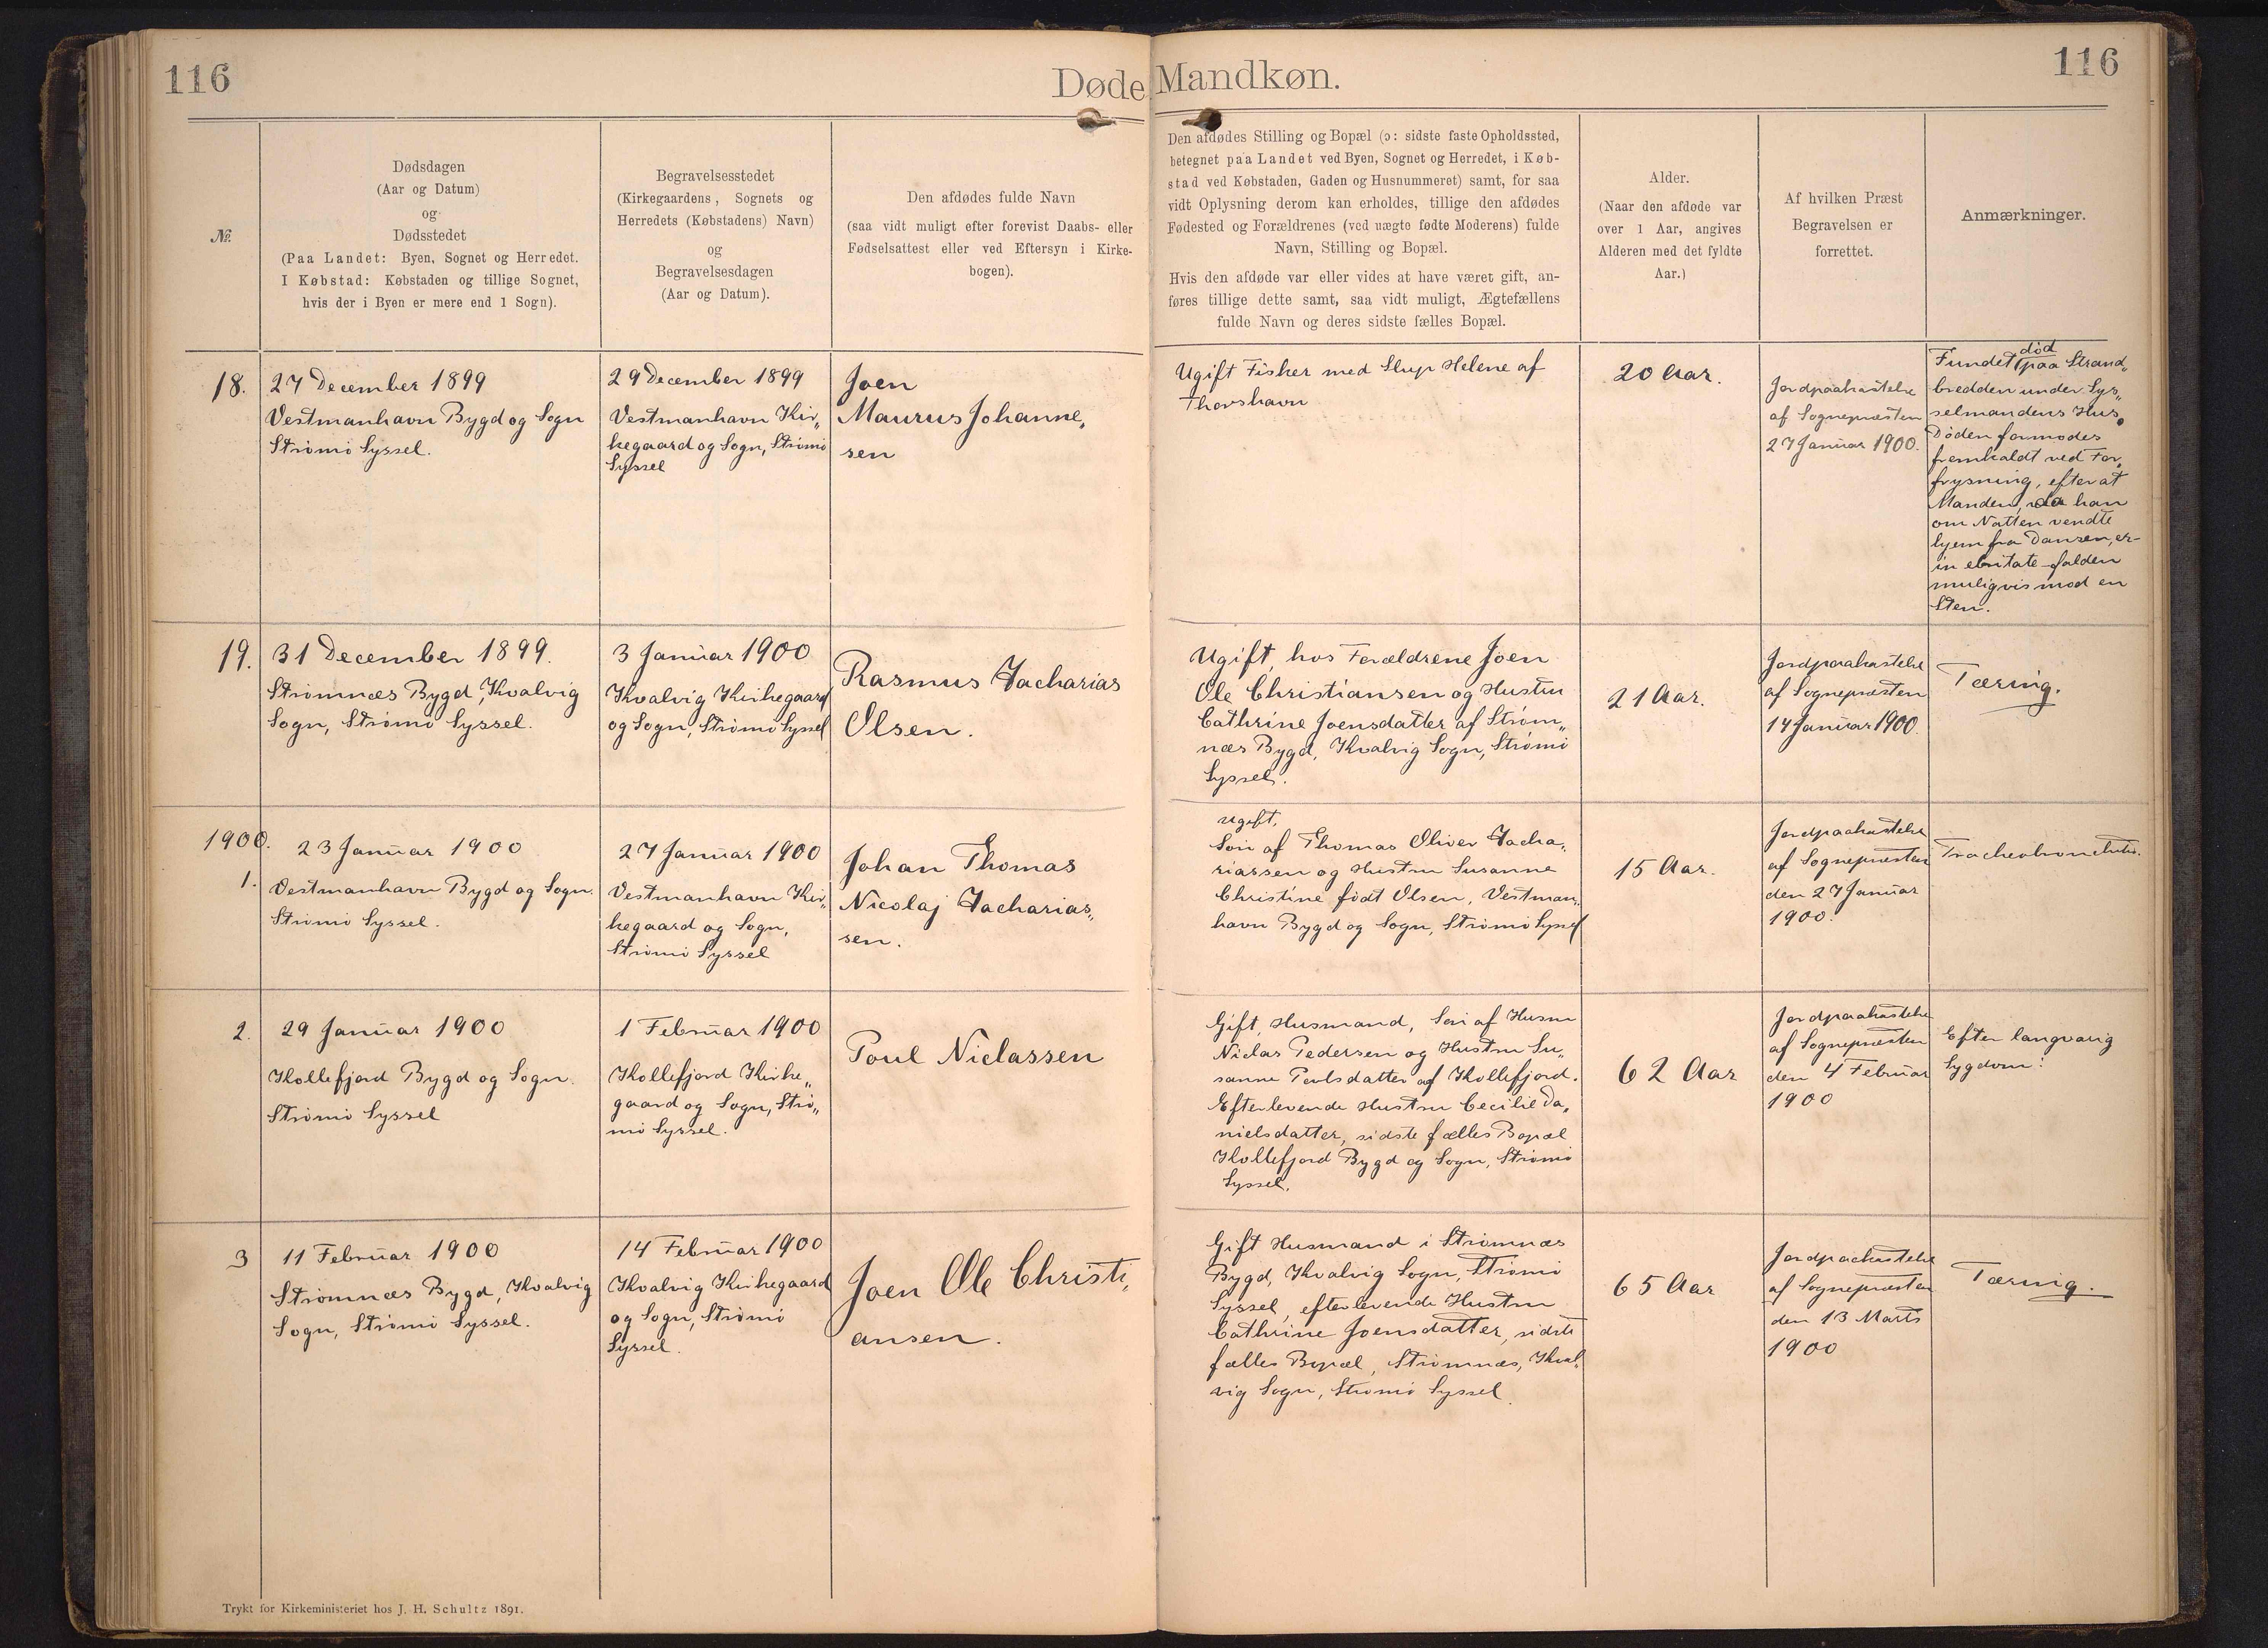 116
Døde Mandkøn.
116
№.
Dødsdagen
(Aar og Datum)
og
Dødsstedet
(Paa Landet: Byen, Sognet og Herredet.
I Købstad: Købstaden og tillige Sognet,
hvis der i Byen er mere end 1 Sogn).
Begravelsesstedet
(Kirkegaardens, Sognets og
Herredets (Købstadens) Navn)
og
Begravelsesdagen
(Aar og Datum).
Den afdødes fulde Navn
(saa vidt muligt efter forevist Daabs- eller
Fødselsattest eller ved Eftersyn i Kirke-
bogen).
Den afdødes Stilling og Bopæl (ɔ: sidste faste Opholdssted,
betegnet paa Landet ved Byen, Sognet og Herredet, i Køb-
stad ved Købstaden, Gaden og Husnummeret) samt, for saa
vidt Oplysning derom kan erholdes, tillige den afdødes
Fødested og Forældrenes (ved uægte fødte Moderens) fulde
Navn, Stilling og Bopæl.
Hvis den afdøde var eller vides at have været gift, an-
føres tillige dette samt, saa vidt muligt, Ægtefællens
fulde Navn og deres sidste fælles Bopæl.
Alder.
(Naar den afdøde var
over 1 Aar, angives
Alderen med det fyldte
Aar.)
Af hvilken Præst
Begravelsen er
forrettet.
Anmærkninger.
18.
27 December 1899
Vestmanhavn Bygd og Sogn
Strømø Syssel.
29 December 1899
Vestmanhavn Kir„
kegaard og Sogn, Strømø
Syssel
Joen
Maurus Johanne„
sen
Ugift Fisker med Slup Helene af
Thorshavn
20 Aar.
Jordpaakastelse
af Sognepræsten
27 Januar 1900.
død
Fundet paa Strand„
bredden under Sys„
selmandens Hus.
Døden formodes
fremkaldt ved For„
frysning, efter at
Manden, da han
om Natten vendte
hjem fra Dansen, er
in ebrietate falden
muligvis mod en
Sten.
19.
31 December 1899.
Strømnæs Bygd, Kvalvig
Sogn, Strømø Syssel.
3 Januar 1900
Kvalvig Kirkegaard
og Sogn, Strømø Syssel
Rasmus Zacharias
Olsen.
Ugift, hos Forældrene Joen
Ole Christiansen og Hustru
Cathrine Joensdatter af Strøm„
næs Bygd, Kvalvig Sogn, Strømø
Syssel.
21 Aar.
Jordpaakastelse
af Sognepræsten
14 Januar 1900.
Tæring.
1900.
1.
23 Januar 1900
Vestmanhavn Bygd og Sogn.
Strømø Syssel.
27 Januar 1900
Vestmanhavn Kir„
kegaard og Sogn,
Strømø Syssel
Johan Thomas
Nicolaj Zacharias„
sen.
Ugift.
Søn af Thomas Oliver Zacha„
riassen og Hustru Susanne
Christine født Olsen, Vestman„
havn Bygd og Sogn, Strømø Syssel
15 Aar.
Jordpaakastelse
af Sognepræsten
den 27 Januar
1900.
2.
29 Januar 1900
Kollefjord Bygd og Sogn.
Strømø Syssel
1 Februar 1900
Kollefjord Kirke„
gaard og Sogn, Strø„
mø Syssel.
Poul Niclassen
Gift, Husmand, Søn af Husm
Niclas Pedersen og Hustru Su„
sanne Poulsdatter af Kollefjord.
Efterlevende Hustru Cecilie Da„
nielsdatter, sidste fælles Bopæl
Kollefjord Bygd og Sogn, Strømø
Syssel.
62 Aar
Jordpaakastelse
af Sognepræsten
den 4 Februar
1900
Efter langvarig
Sygdom.
3
11 Februar 1900
Strømnæs Bygd, Kvalvig
Sogn, Strømø Syssel.
14 Februar 1900
Kvalvig Kirkegaard
og Sogn, Strømø
Syssel.
Joen Ole Christi„
ansen.
Gift Husmand i Strømnæs
Bygd, Kvalvig Sogn, Strømø
Syssel, efterlevende Hustru
Cathrine Joensdatter, sidste
fælles Bopæl, Strømnæs, Kval„
vig Sogn, Strømø Syssel.
65 Aar
Jordpaakastelse
af Sognepræsten
den 13 Marts
1900
Tæring.
Trykt for Kirkeministeriet hos J. H. Schultz 1891.